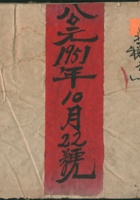 公元1951年10月22號